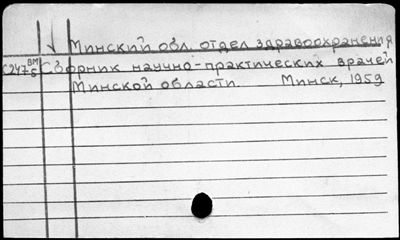 Минский обл. отдел здравоохранения
Сборник научно-практических врачей
Минской области. Минск, 1959